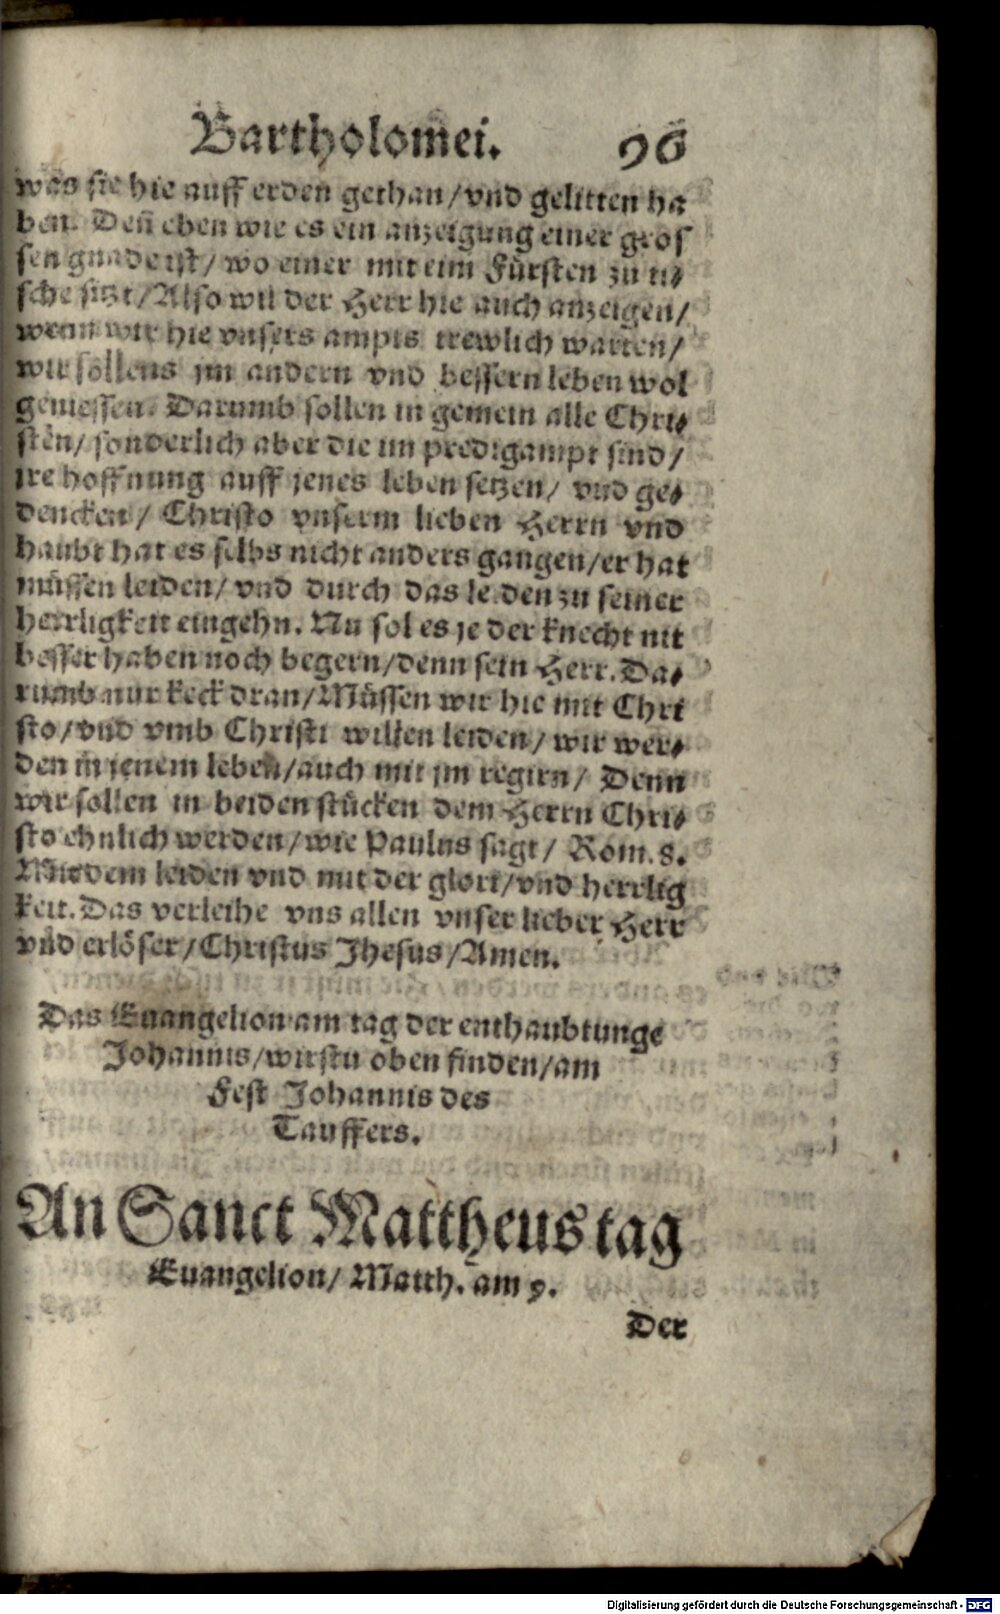 Bartholomei. 96
was sie hie auff erden gethan/vnd gelitten ha
ben. Deñ eben wie es ein anzeigung einer gros
sen gnade ist/ wo einer mit eim Fürsten zu ti⸗
sche sitzt/Also wil der Herr hie auch anzeigen/
wenn wir hie vnsers ampts trewlich warten/
wir sollens im andern vnd bessern leben wol
geniessen. Darumb sollen in gemein alle Chri⸗
sten/ sonderlich aber die im predigampt sind/
ire hoffnung auff jenes leben setzen/ vnd ge⸗
dencken/ Christo vnserm lieben Herrn vnd
haubt hat es selbs nicht anders gangen/er hat
müssen leiden/ vnd durch das leiden zu seiner
herrligkeit eingehn. Nu sol es je der knecht nit
besser haben noch begern/denn sein Herr. Da⸗
rumb nur keck dran/Müssen wir hie mit Chri
sto/vnd vmb Christi willen leiden/ wir wer⸗
den in jenem leben/auch mit jm regirn/ Denn
wir sollen in beiden stücken dem Herrn Chri⸗
sto ehnlich werden/wie Paulus sagt/ Rom. 8.
Mit dem leiden vnd mit der glori/vnd herrlig
keit. Das verleihe vns allen vnser lieber Herr
vnd erlöser/Christus Jhesus/Amen.
Das Euangelion am tag der enthaubtunge
Johannis/wirstu oben finden/am
Fest Johannis des
Tauffers.
An Sanct Mattheus tag
Euangelion/ Matth. am 9.
Der
Digitalisierung gefördert durch die Deutsche Forschungsgemeinschaft - DFG